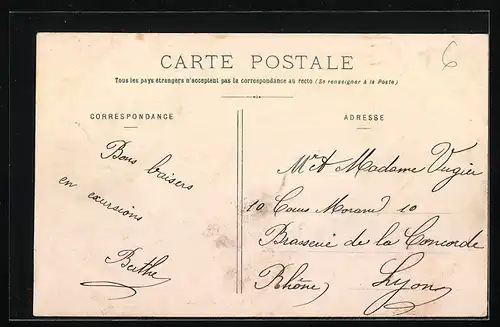 CARTE POSTALE
Tous les pays étrangers n'acceptent pas la correspondance au recto (Se renseigner à la Poste)
6
CORRESPONDANCE
Bons baisers
en excursions
Berthe
ADRESSE
Mr et Madame Vugier
10 Cours Morand 10
Brasserie de la Concorde
Lyon
Rhône